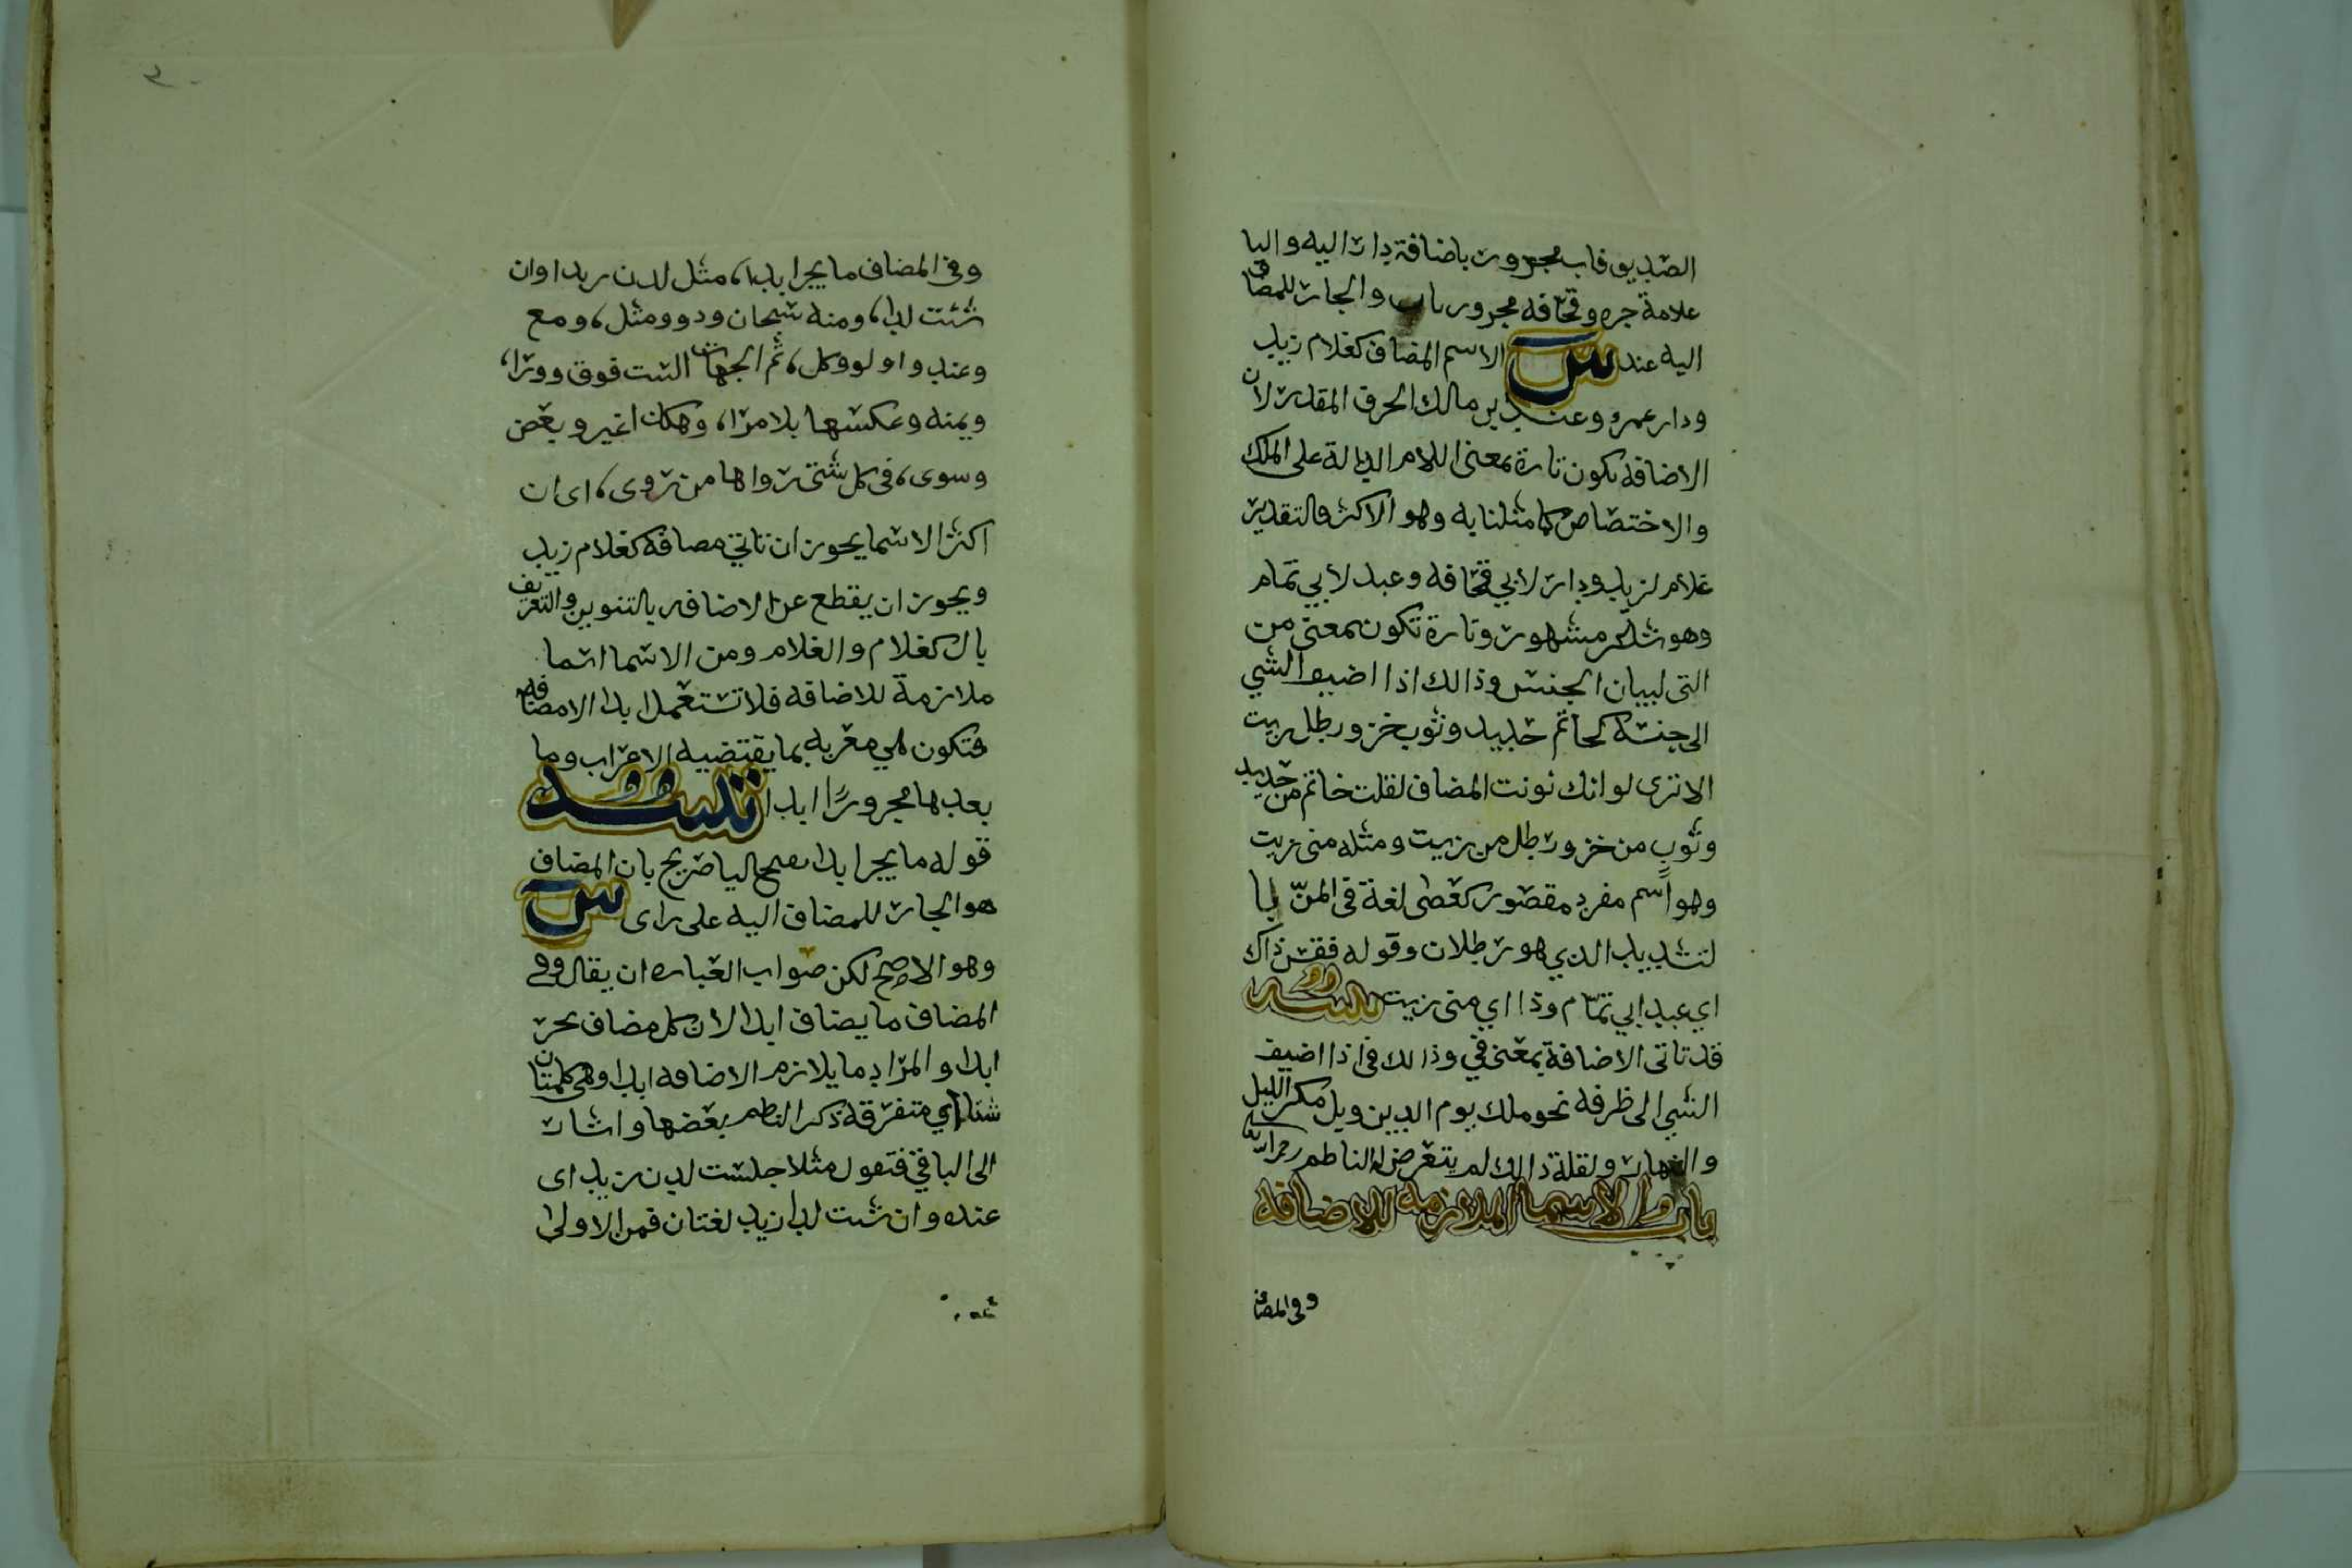 الصديق فاب مجرور باضافة دار اليه واليا
علامة جره وقحافه مجرور باب والجار للمضاف
اليه عند س الاسم المضاف كغلام زيد
ودار عمرو وعند بن مالك الحرف المقدر لان
الاضافه تكون تارة بمعنى اللام الدالة على الملك
والاختصاص كما مثلنا به وهو الاكثر فالتقدير
غلام لزيد ودار لابي قحافه وعبد لابي تمام
وهو شاعر مشهور وتارة تكون بمعنى من
التى لبيان الجنس وذالك اذا اضيف الشي
الى جنسه كخاتم حديد وثوب خز ورطل زيت
الا ترى لو انك نونت المضاف لقلت خاتم من حديد
وثوب من خز ورطل من زيت ومثله منى زيت
وهو اسم مفرد مقصور كعصى لغة في المنّ با
لتشديد الذي هو رطلان وقوله فقس ذاك
اي عبد ابي تمّام وذا اي منى زيت تنبيه
قد تاتى الاضافة بمعنى في وذالك في اذا اضيف
الشي الى ظرفه نحو ملك يوم الدين وبل مكر الليل
والنهار ولقلة ذالك لم يتعرض له الناظم رحمه الله
باب الاسما الملازمه للاضافه
وفي المضاف
وفي المضاف ما يجر ابدا، مثل لدن زيد وان
شئت لدا، ومنه سبحان وذو ومثل، ومع
وعند واولو وكل، ثم الجهات الست فوق وورا،
ويمنه وعكسها بلا مرا، وهكذا غير وبعض
وسوى، في كلم شتى رواها من روى، اى ان
اكثر الاسما يجوز ان تاتي مضافه كغلام زيد
ويجوز ان يقطع عن الاضافه بالتنوين والتعريف
بال كغلام والغلام ومن الاسما اسما
ملازمة للاضافه فلا تستعمل ابدا الا مضافه
فتكون هي معربه بما يقتضيه الاعراب وما
بعدها مجرورًا ابدا تنبيه
قوله ما يجر ابدا بفتح اليا صريح بان المضاف
هو الجار للمضاف اليه على راى س
وهو الاصح لكن صواب العباره ان يقال وفي
المضاف ما يضاف ابدا لان كل مضاف يجر
ابدا والمراد ما يلازم الاضافه ابدا وهي كلمتان
شتا اي متفرقه ذكر الناظم بعضها واشار
الى الباقي فتقول مثلا جلست لدن زيد اى
عنده وان شئت لدا زيد لغتان فمن الاولى